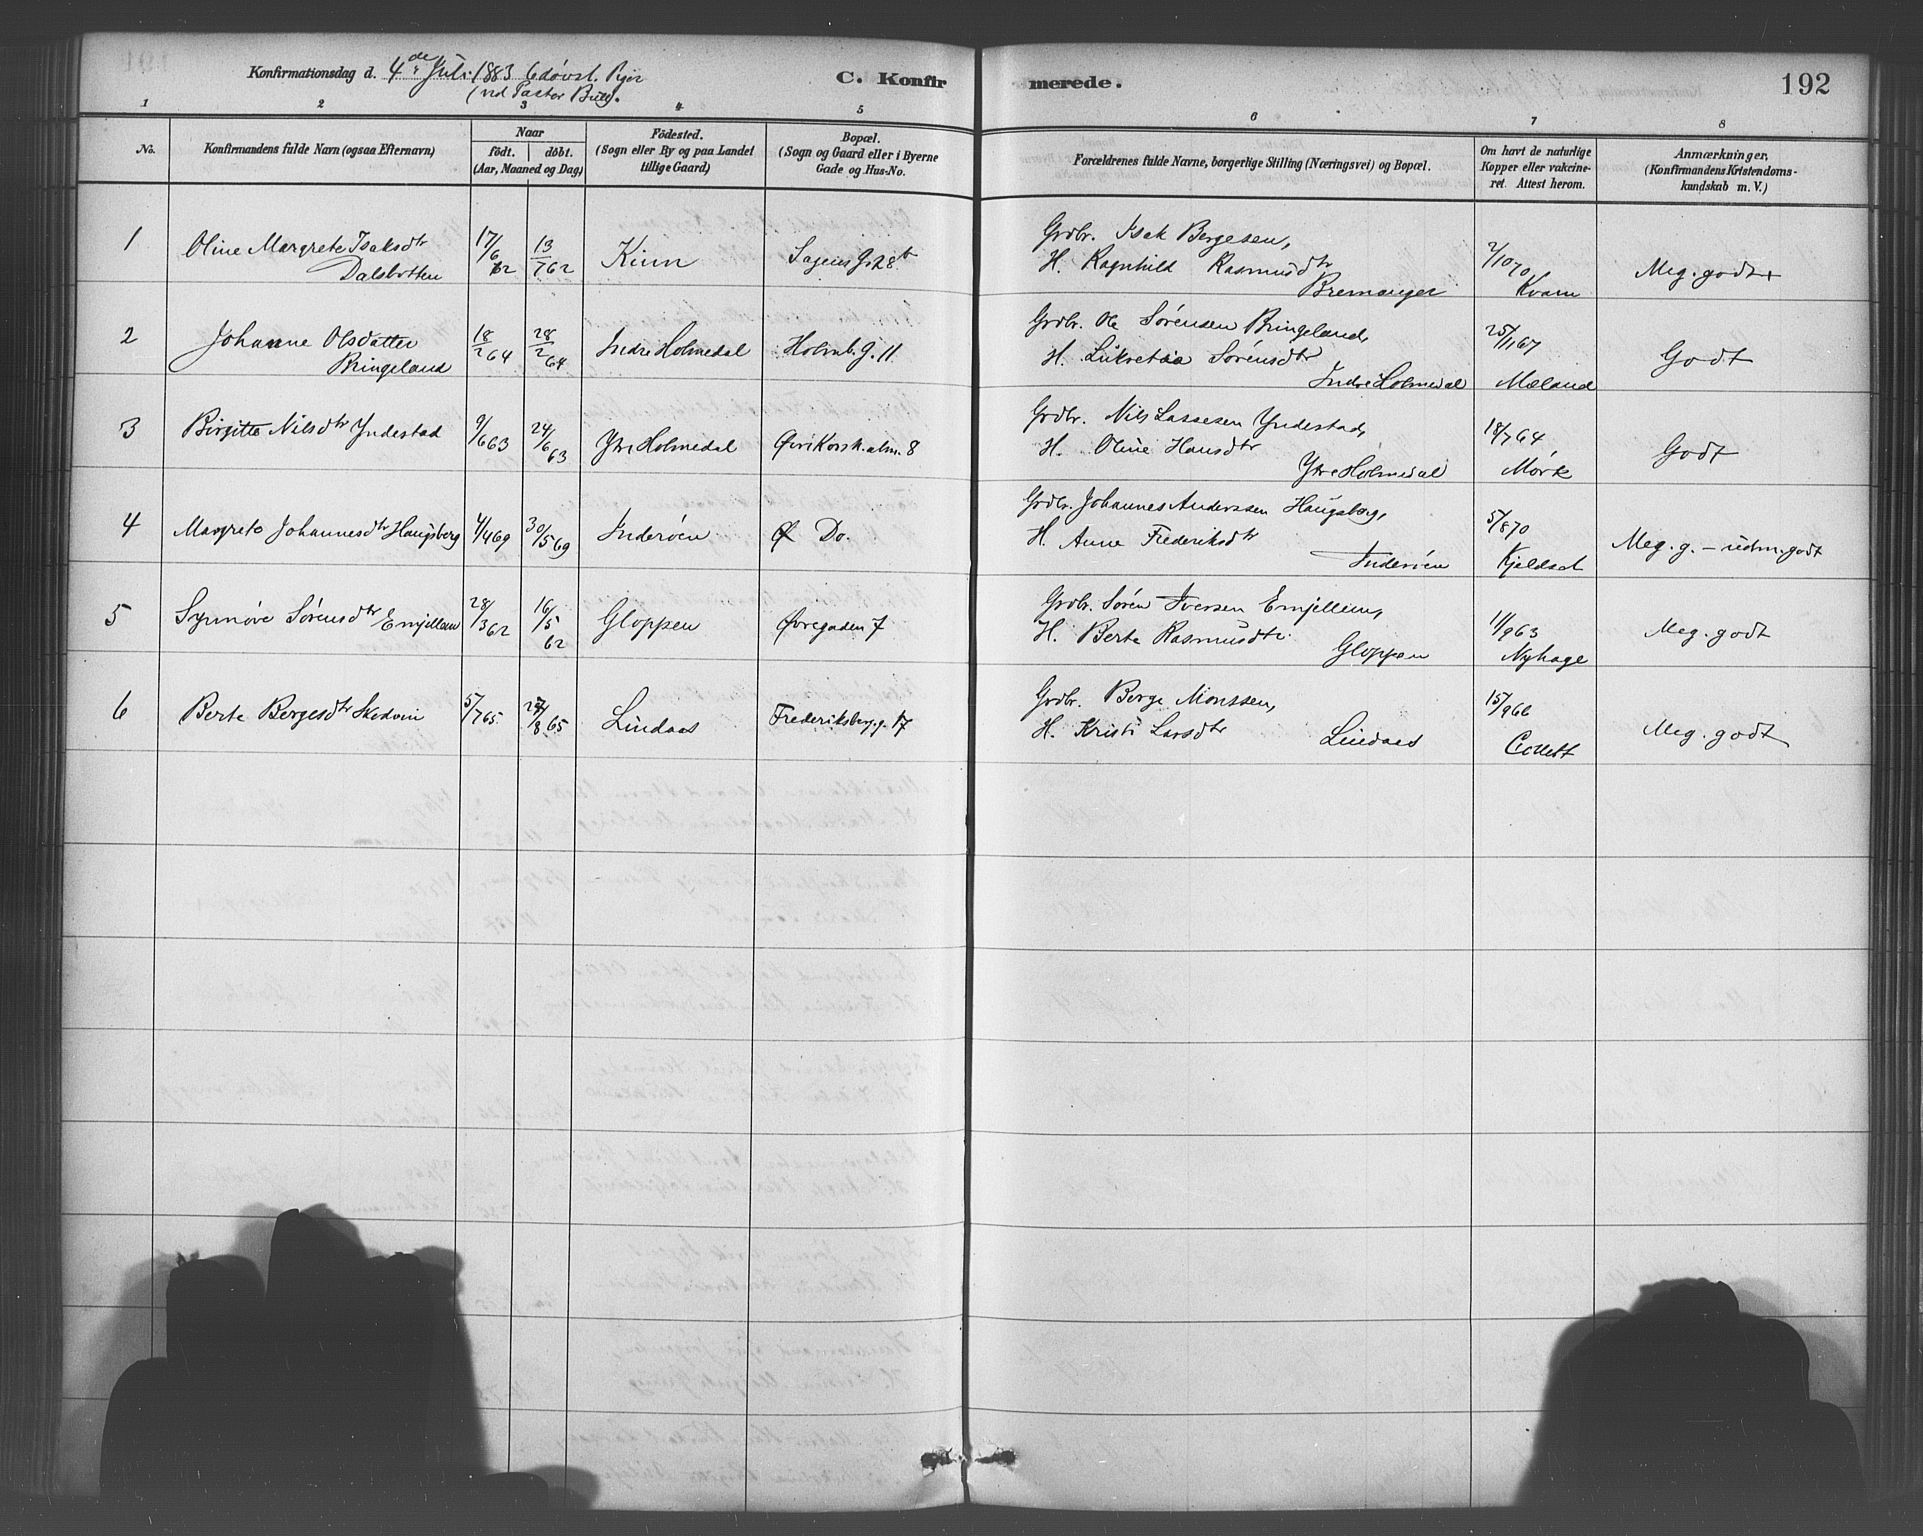 Konfirmationsdag d. 4de Juli 1883 6 døvst. Piger
(ved Pastor Bull).
C. Konfirmerede.
192
1 2 3 4 5 6 7 8
No.
Konfirmandens fulde Navn (ogsaa Efternavn)
Naar
født. døbt.
(Aar, Maaned og Dag)
Fødested.
(Sogn eller By og paa Landet
tillige Gaard)
Bopæl.
(Sogn og Gaard eller i Byerne
Gade og Hus-No.
Forældrenes fulde Navne, borgerlige Stilling (Næringsvei) og Bopæl.
Om havt de naturlige
Kopper eller vakcine-
ret. Attest herom.
Anmærkninger,
(Konfirmandens Kristendoms-
kundskab m. V.)
1 Oline Margrete Isaksdtr
Dalsbotten
17/6 62 13/7 62 Kinn Sagens G. 28b
Grdbr. Isak Bergesen,
H. Ragnhild Rasmusdtr
Bremanger
2/10 70
Kvam
Meg. godt+
2 Johanne Olsdatter
Bringeland
18/2 64 28/2 64 Indre Holmedal Holmb. G. 11
Grdbr. Ole Sørensen Bringeland,
H. Lukretia Sørensdtr
Indre Holmedal
25/11 67
Mæland
Godt
3 Birgitte Nilsdtr Yndestad
9/6 63 24/6 63 Ytre Holmedal Øvr Korsk. alm. 8
Grdbr. Nils Lassesen Yndestad,
H. Oline Hansdtr
Ytre Holmedal
18/7 64
Mørk
Godt
4 Margrete Johannesdtr Haugsberg
4/4 69 30/5 69 Inderøen Do.
Grdbr. Johannes Anderssen Haugsberg,
H. Anne Frederiksdtr
Inderøen
5/8 70
Meg. g. – udm. godt
5 Synnøve Sørensdtr Emjellem
28/3 62 16/5 62 Gloppen Øvregaden 7
Grdbr. Søren Iversen Emjellem,
H. Berte Rasmusdtr
Gloppen
11/9 63
Nyhage
Meg. godt
6 Berte Bergesdtr
5/7 65. /8 65 Lindaas Frederiksberg g. 17
Grdbr. Berge Monssen,
H. Kristi Larsdtr
Lindaas
15/9 66
Collett
Meg. godt